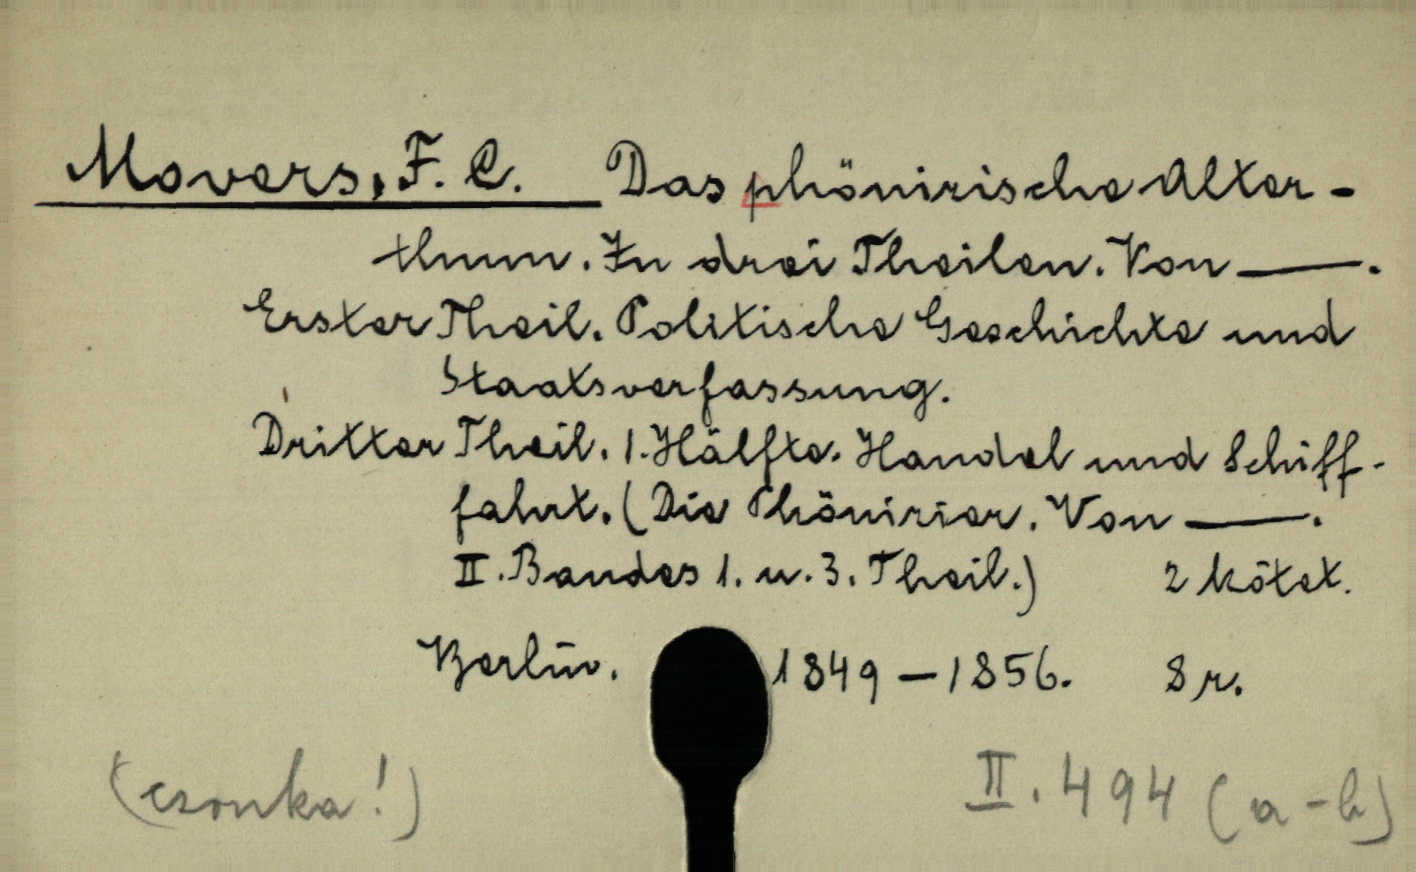 Movers, F. C. Das phönizische Alter-
thum. In drei Theilen. Von —.
Erster Theil. Politische Geschichte und
Staatsverfassung.
Dritter Theil. 1. Hälfte. Handel und Schiff-
fahrt. (Die Phönizier. Von —.
II. Bandes 1. u. 3. Theil.) 2 kötet.
Berlin. 1849 — 1856. 8 r.
(csonka!) II. 494 (a-b)